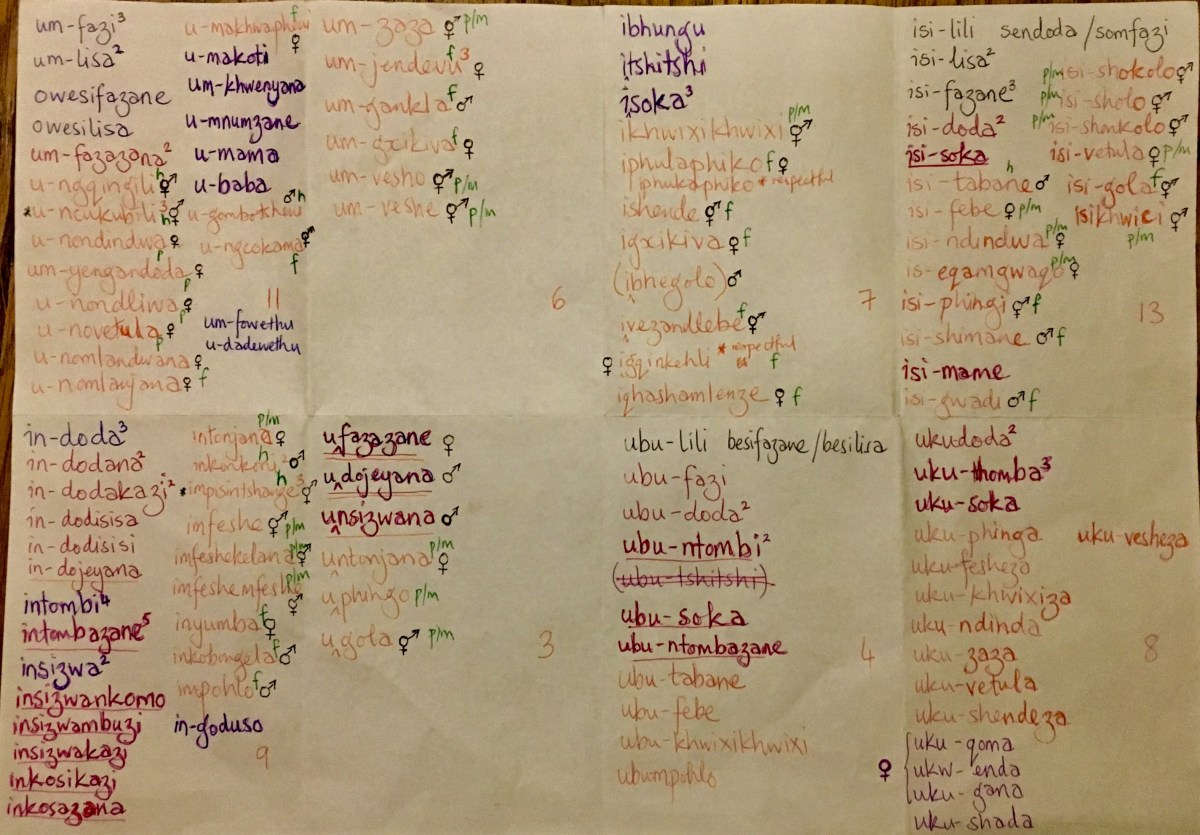 um-fazi³
um-lisa²
owesifazane
owesilisa
um-fazazana²
u-ngqingili h ⚥
*u-ncukubili³ h ⚥
u-nondindwa ♀
p
um-yengandoda ♀
p
u-nondliwa ♀
p
u-novetula ♀
p
u-nomlandwana ♀
u-nomlaujana ♀ f
f
♀
u-makoti
um-khwenyana
u-mnumzane
u-mama
u-baba
♂h
u-ngcokama
f
11
um-fowethu
u-dadewethu
um-zaza ⚥ p/m
um-jendevu³ f ♀
um-gankla f ♂
um-gxikiva f ♀
um-vesho ⚥ p/m
um-veshe ⚥ p/m
6
ibhungu
itshitshi
isoka³
p/m
ikhwixikhwixi ⚥
iphulaphiko f ♀
iphukaphiko * respectful
ishende ⚥ f
igxikiva ♀ f
(ibhegolo) ♂
7
ivezandlebe f ⚥
♀ igqinkehli * respectful
f
iqhashamlenze ♀ f
isi-lili sendoda/somfazi
isi-lisa²
isi-fazane³
isi-doda²
isi-soka
isi-tabane h ♂
isi-febe ♀ p/m
isi-ndindwa p/m ♀
is-eqamgwaqo p/m ♀
isi-phingi ⚥ f
isi-shimane ♂ f
isi-mame
isi-gwadi ♂ f
p/m isi-shokolo ⚥
p/m isi-sholo ⚥
p/m isi-shonkolo ⚥
isi-vetula ♀ p/m
isi-gola f ⚥
isikhwici ⚥
p/m
13
in-doda³
in-dodana²
in-dodakazi²
in-dodisisa
in-dodisisi
in-dojeyana
intombi⁴
intombazane⁵
insizwa²
insizwankomo
insizwambuzi
insizwakazi
inkosikazi
inkosazana
p/m
intonjana ♀
h
inkonkoni² ♂
h
*impisintshange³ ⚥
imfeshe ⚥ p/m
imfeshekelana p/m ⚥
imfeshemfeshe p/m
⚥
inyumba f ♀
inkobongela f ♂
impohlo f ♂
in-goduso
9
ufazazane ♀
udojeyana ♂
unsizwana ♂
untonjana p/m ♀
uphingo p/m
ugola ⚥ p/m
3
ubu-lili besifazane/besilisa
ubu-fazi
ubu-doda²
ubu-ntombi²
(ubu-tshitshi)
ubu-soka
ubu-ntombazane
ubu-tabane
ubu-febe
ubu-khwixikhwixi
ubumpohlo
4
ukudoda²
uku-thomba³
uku-soka
uku-phinga uku-vesheza
uku-fesheza
uku-khwixiza
uku-ndinda
uku-zaza
uku-vetula
uku-shendeza
8
♀ uku-qoma
ukw-enda
uku-gana
uku-shada